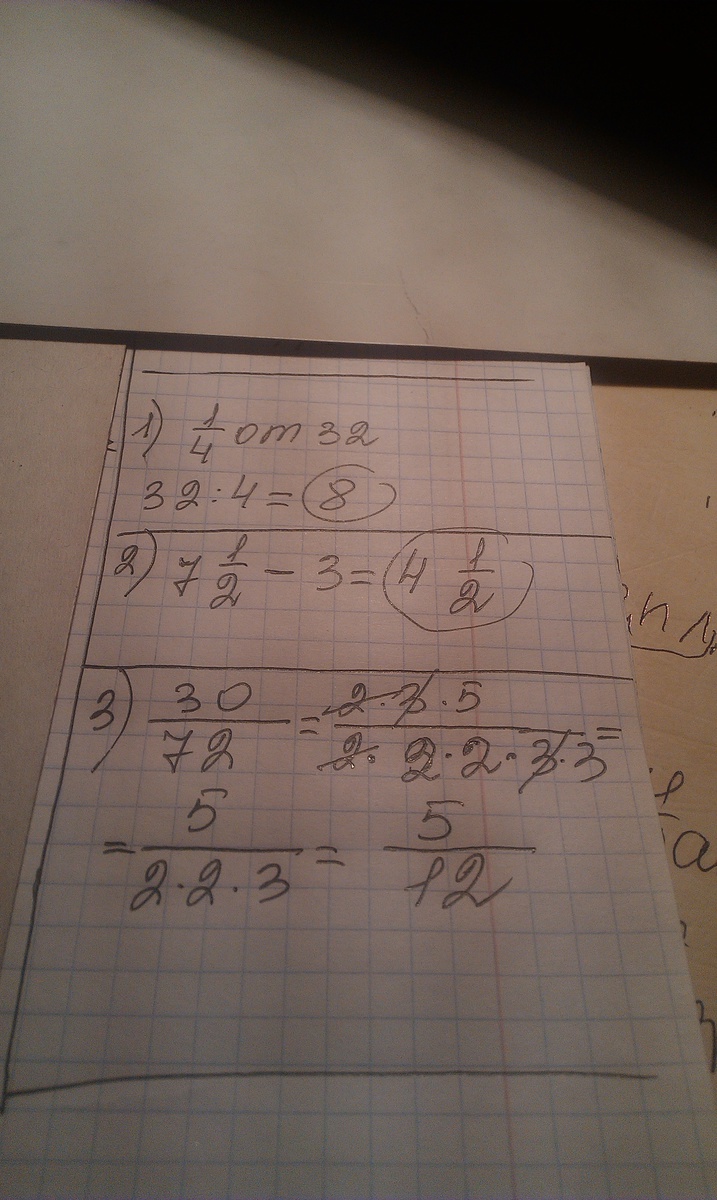 1) 1/4 от 32
32:4= 8
2) 7 1/2 - 3= 4 1/2
3) 30/72 = 2·3·5/2·2·2·3·3 =
= 5/2·2·3 = 5/12